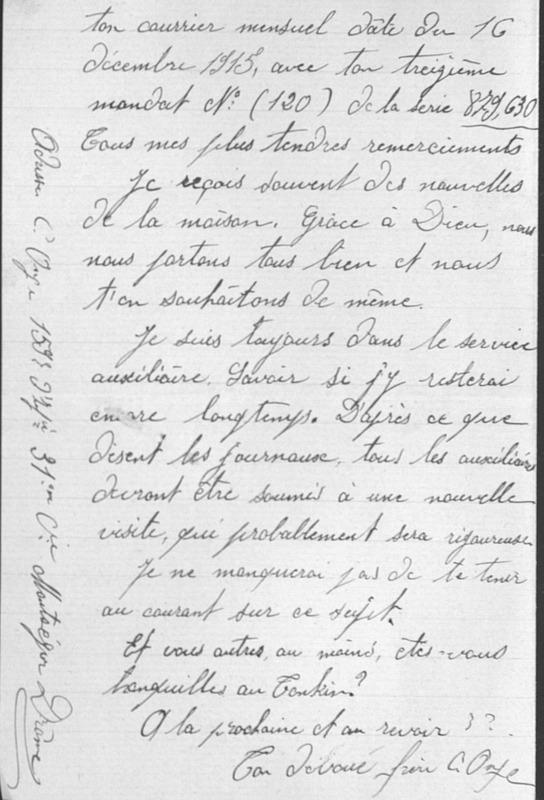 ton courrier mensuel dâte du 16
décembre 1915, avec ton treizième
mandat N° (120) de la serie 879,630
Tous mes plus tendres remerciements
Je reçois souvent des nouvelles
de la maison. Grâce à Dieu, nous
nous portons tous bien et nous
t'en souhaitons de même.
Je suis toujours dans le service
auxiliaire. Savoir si j'y resterai
encore longtemps. D'après ce que
disent les journaux, tous les auxiliaires
devront être soumis à une nouvelle
visite, qui probablement sera rigoureuse
Je ne manquerai pas de te tenir
au courant sur ce sujet.
Et vous autres, au moins, êtes-vous
tranquilles au Tonkin?
A la prochaine et au revoir ??.
Ton dévoué frère C. Onze
Adresse C. Onze 31ème Cie Montségur Drôme